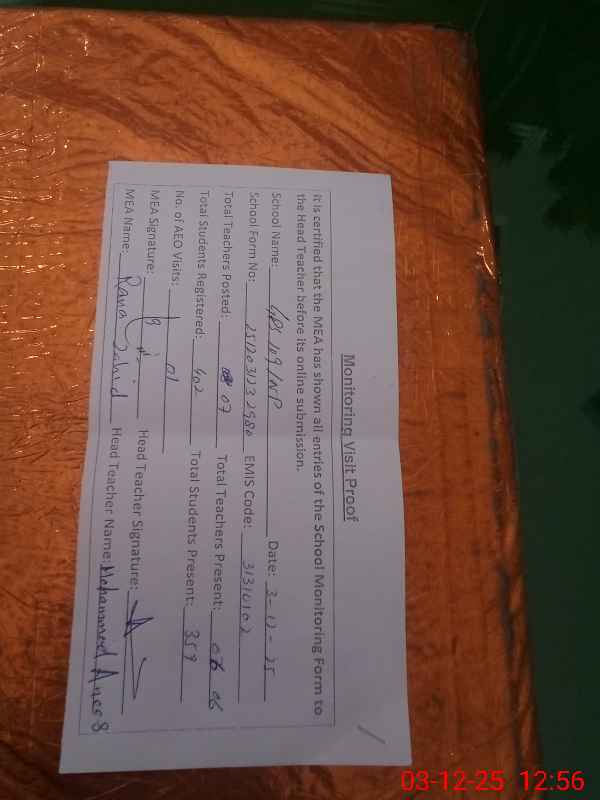 Monitoring Visit Proof
It is certified that the MEA has shown all entries of the School Monitoring Form to
the Head Teacher before its online submission.
School Name: GPS 109/WP Date: 3-12-25
School Form No: EMIS Code: 31310102
Total Teachers Posted: 07 Total Teachers Present: 06 06
Total Students Registered: 402 Total Students Present: 359
No. of AEO Visits: 01
MEA Signature: Head Teacher Signature:
MEA Name: Rana Zahid Head Teacher Name: Mohammad Anees
03-12-25 12:56